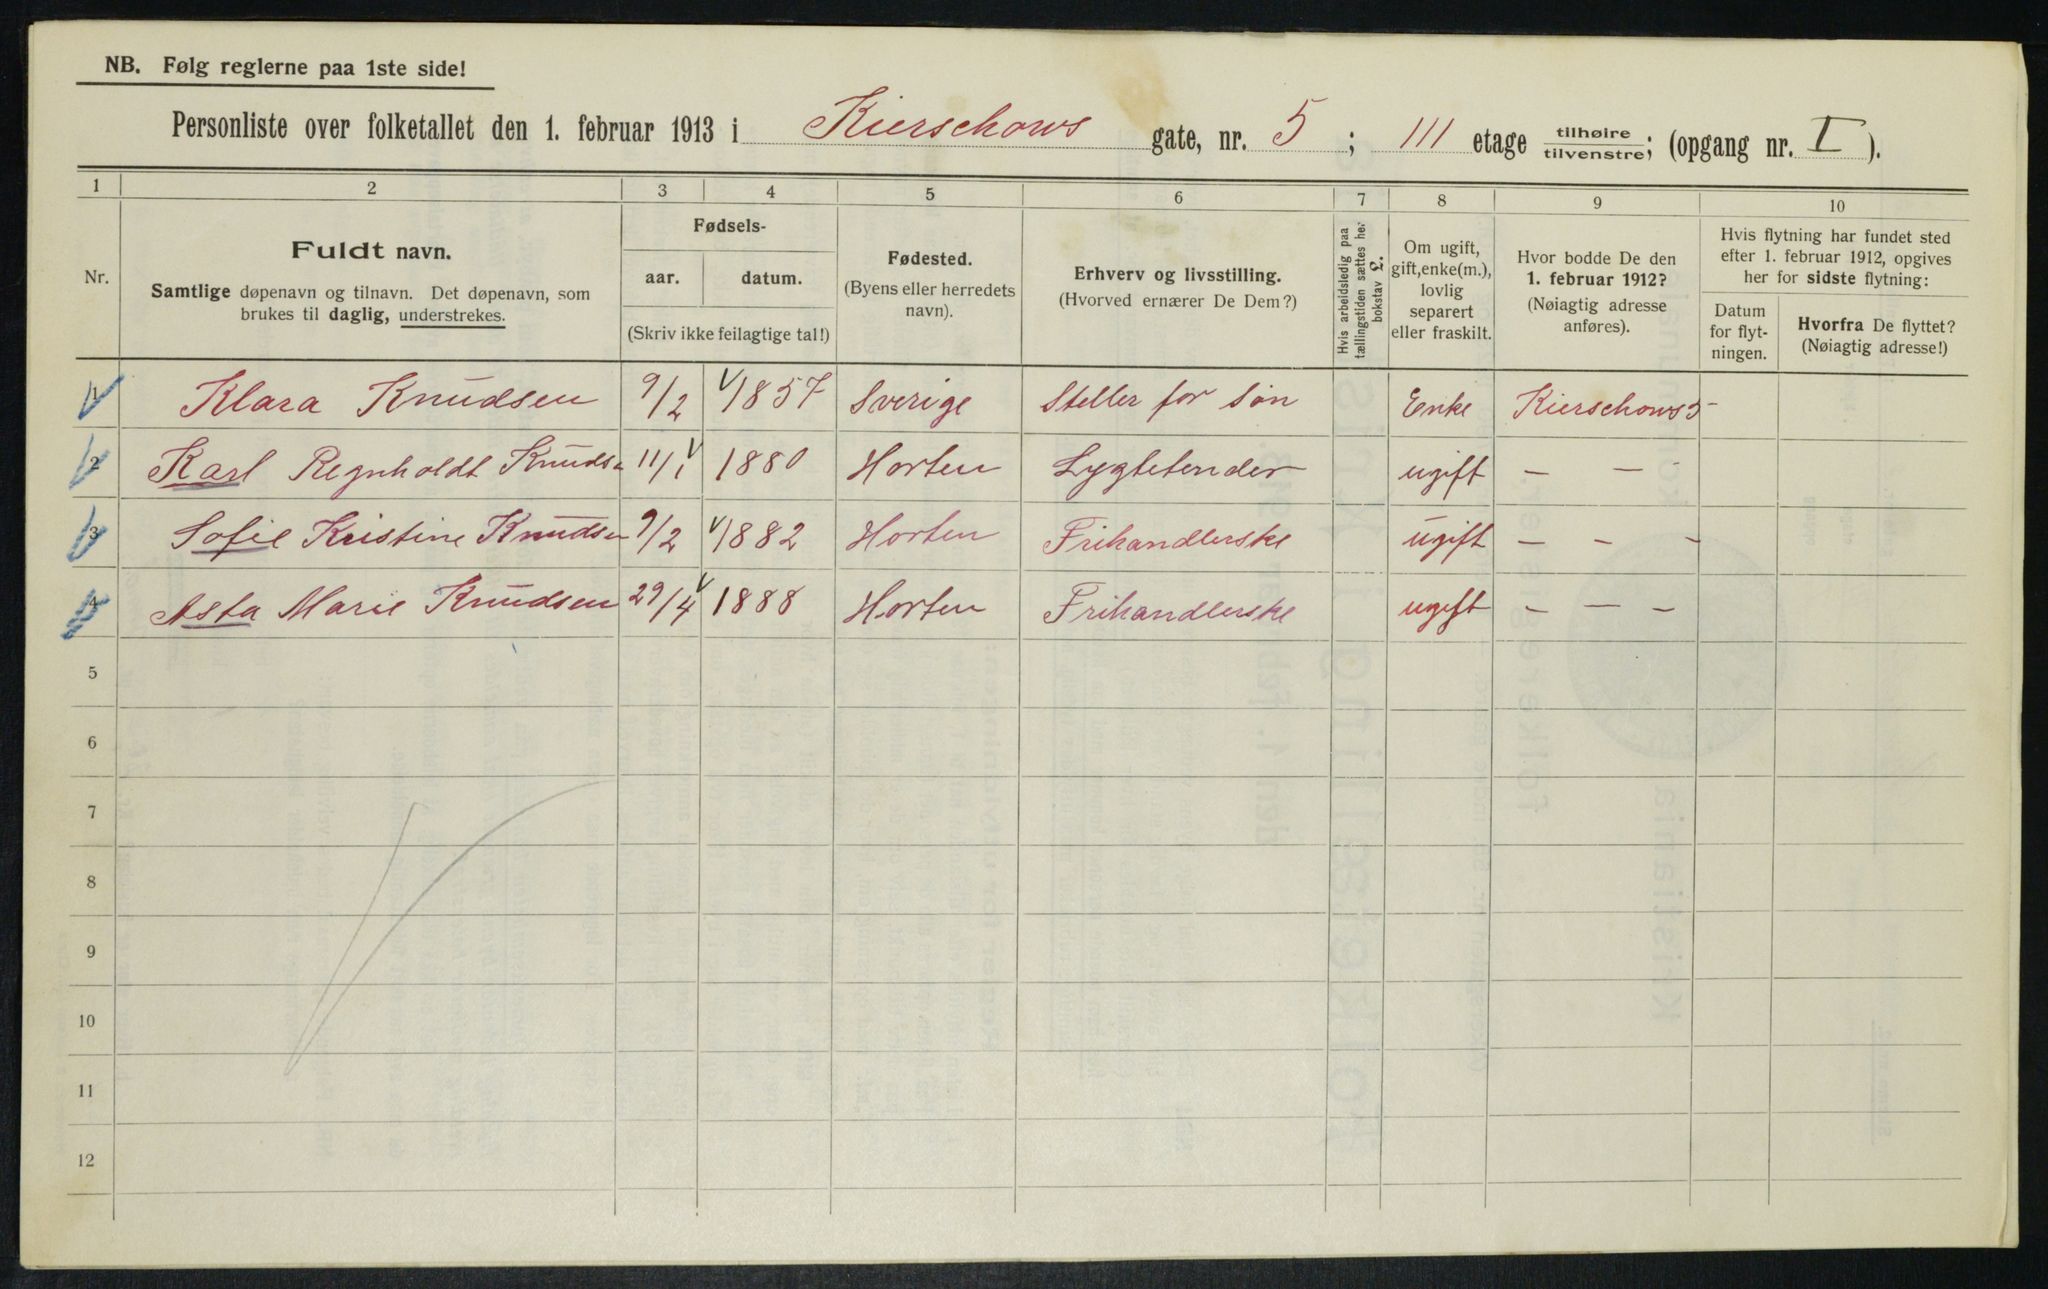 NB. Følg reglerne paa 1ste side!
Personliste over folketallet den 1. februar 1913 i Kierschows gate, nr. 5; III etage tilhøire/tilvenstre; (opgang nr. I).
1 2 3 4 5 6 7 8 9 10
Nr.
Fuldt navn.
Samtlige døpenavn og tilnavn. Det døpenavn, som
brukes til daglig, understrekes.
Fødsels-
aar. datum.
(Skriv ikke feilagtige tal!)
Fødested.
(Byens eller herredets
navn).
Erhverv og livsstilling.
(Hvorved ernærer De Dem?)
Hvis arbeidsledig paa
tællingstiden sættes her
bokstav L.
Om ugift,
gift, enke(m.),
lovlig
separert
eller fraskilt.
Hvor bodde De den
1. februar 1912?
(Nøiagtig adresse
anføres).
Hvis flytning har fundet sted
efter 1. februar 1912, opgives
her for sidste flytning:
Datum
for flyt-
ningen.
Hvorfra De flyttet?
(Nøiagtig adresse!)
1 Klara Knudsen 9/2 1857 Sverige Steller for søn Enke Kierschows 5
2 Karl Regnholdt Knudsen 11/1 1880 Horten Lygtetender ugift — —
3 Sofie Kristine Knudsen 9/2 1882 Horten Frihandlerske ugift — — —
4 Asta Marie Knudsen 29/4 1888 Horten Frihandlerske ugift — — —
5
6
7
8
9
10
11
12